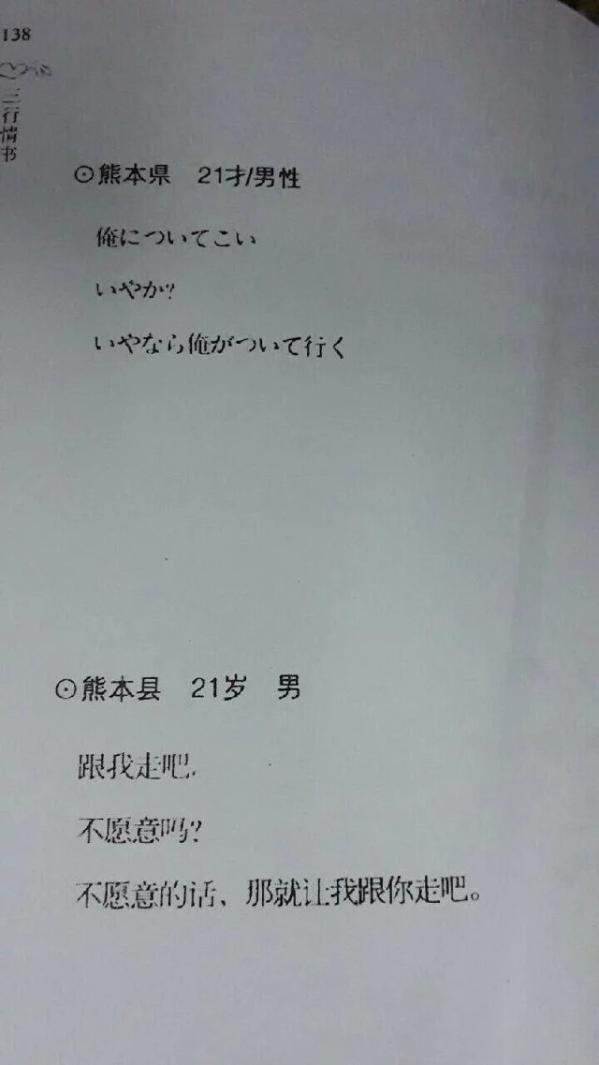 138
三行情书
⊙熊本県 21才/男性
俺についてこい
いやか?
いやなら俺がついて行く
⊙熊本县 21岁 男
跟我走吧.
不愿意吗?
不愿意的话、那就让我跟你走吧。